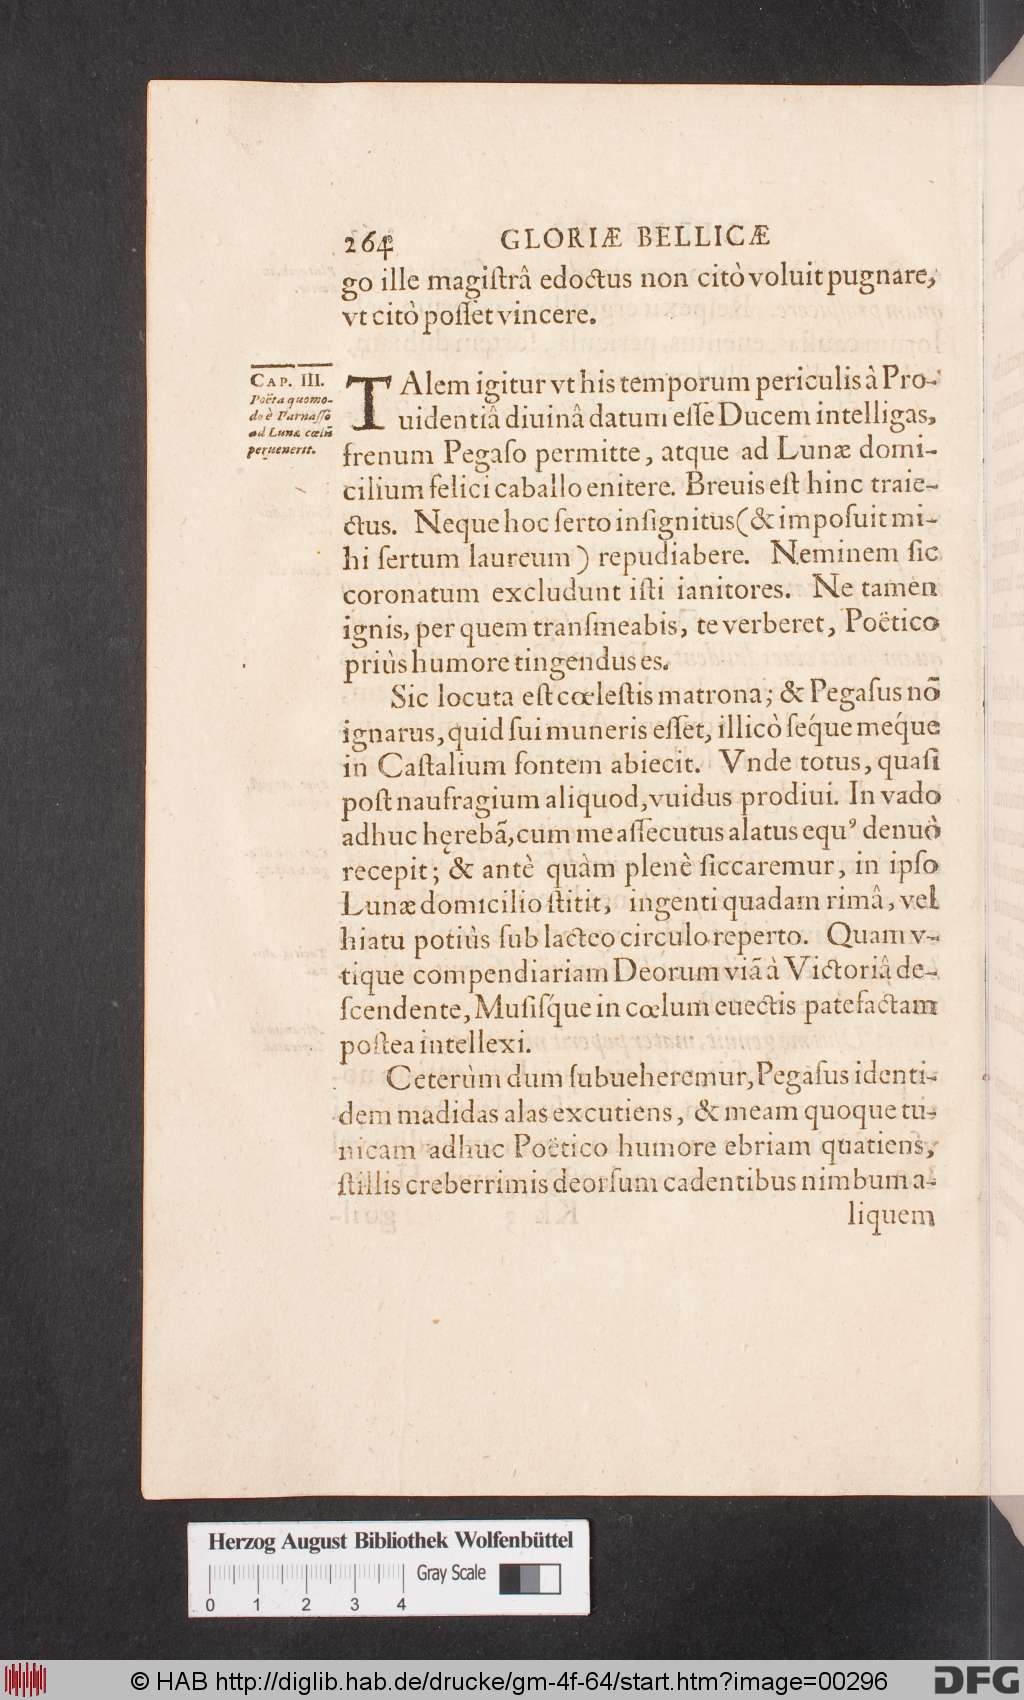 264 GLORIÆ BELLICÆ
go ille magiſtrâ edoctus non citò voluit pugnare,
vt citò poſſet vincere.
CAP. III.
Poëta quomo-
do è Parnaſſo
ad Lunæ cœlũ
peruenerit.
TAlem igitur vt his temporum periculis à Pro-
uidentiâ diuinâ datum eſſe Ducem intelligas,
frenum Pegaſo permitte, atque ad Lunæ domi-
cilium felici caballo enitere. Breuis eſt hinc traie-
ctus. Neque hoc ſerto inſignitus (& impoſuit mi-
hi ſertum laureum) repudiabere. Neminem ſic
coronatum excludunt iſti ianitores. Ne tamen
ignis, per quem tranſmeabis, te verberet, Poëtico
priùs humore tingendus es.
Sic locuta eſt cœleſtis matrona; & Pegaſus nõ
ignarus, quid ſui muneris eſſet, illicò ſéque meque
in Caſtalium fontem abiecit. Vnde totus, quaſi
poſt naufragium aliquod, vuidus prodiui. In vado
adhuc hęrebã, cum me aſſecutus alatus equꝰ denuò
recepit; & antè quàm plenè ſiccaremur, in ipſo
Lunæ domicilio ſtitit, ingenti quadam rimâ, vel
hiatu potiùs ſub lacteo circulo reperto. Quam v-
tique compendiariam Deorum viã à Victoriâ de-
ſcendente, Muſiſque in cœlum euectis patefactam
poſtea intellexi.
Ceterùm dum ſubueheremur, Pegaſus identi-
dem madidas alas excutiens, & meam quoque tu-
nicam adhuc Poëtico humore ebriam quatiens,
ſtillis creberrimis deorſum cadentibus nimbum a-
liquem
Herzog August Bibliothek Wolfenbüttel
Gray Scale
0 1 2 3 4
© HAB http://diglib.hab.de/drucke/gm-4f-64/start.htm?image=00296
DFG